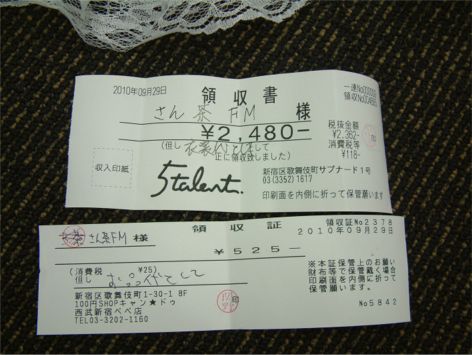 2010年09月29日
領収書
さん茶 FM 様
¥2,480-
(但し 衣装代として
正に領収致しました)
税抜金額
¥2,362-
消費税等
¥118-
収入印紙
5talent.
新宿区歌舞伎町サブナード1号
03(3352)1617
印刷面を内側に折って保管願います
領収証
領収証No2378
2010年09月29日
さん茶FM 様
¥525-
(消費税 ¥25)
但し
として
※本証保管上のお願い
財布等で保管戴く場合
印刷面を内側に折って
保管願います。
新宿区歌舞伎町1-30-1 8F
100円SHOPキャン★ドゥ
西武新宿ペペ店
TEL03-3202-1160
印
No5842